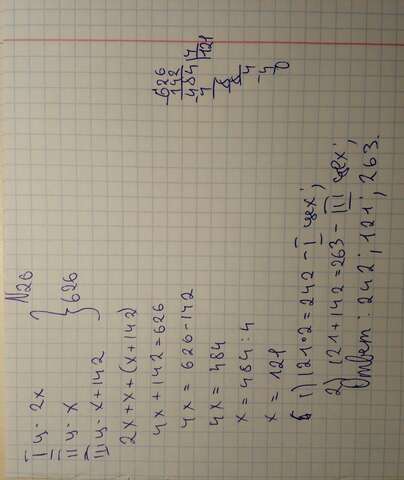 N26
I ц. 2x
II ц. x } 626
III ц. x+142
2x+x+(x+142)
4x+142=626
4x = 626-142
4x = 484
x = 484:4
x = 121
1) 121·2=242 - I цех;
2) 121+142=263 - III цех;
Ответ: 242; 121; 263.
626
142
484 4
4 121
8
8
4
-4
0